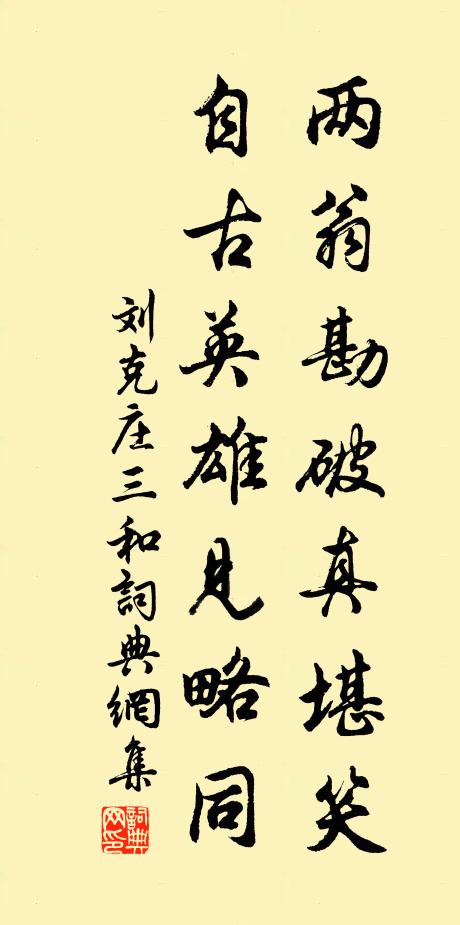 两翁勘破真堪笑
自古英雄见略同
刘克庄三和詞典網集
詞典
网印